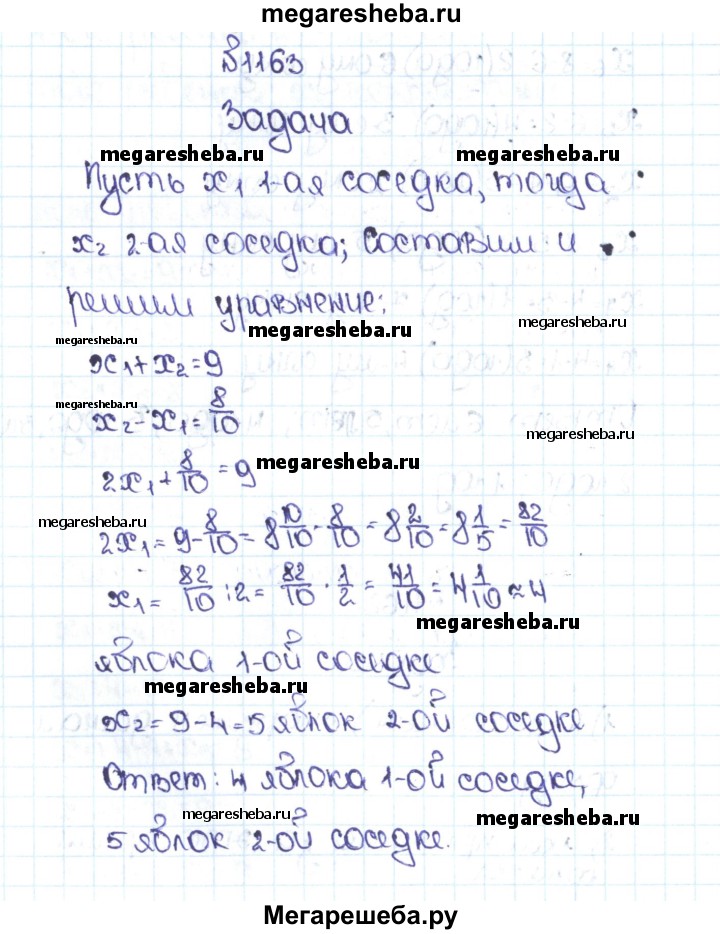 megaresheba.ru
№1163
Задача
megaresheba.ru megaresheba.ru
Пусть x₁ 1-ая соседка, тогда
x₂ 2-ая соседка; составим и
решим уравнение:
megaresheba.ru megaresheba.ru
megaresheba.ru
x₁+x₂=9
megaresheba.ru
x₂-x₁=8/10
megaresheba.ru
2x₁+8/10=9 megaresheba.ru
megaresheba.ru
2x₁=9-8/10=8 10/10-8/10=8 2/10=8 1/5=82/10
x₁=82/10:2=82/10·1/2=41/10=4 1/10≈4
megaresheba.ru
яблока 1-ой соседке
megaresheba.ru
x₂=9-4=5 яблок 2-ой соседке
Ответ: 4 яблока 1-ой соседке,
megaresheba.ru megaresheba.ru
5 яблок 2-ой соседке.
Мегарешеба.ру